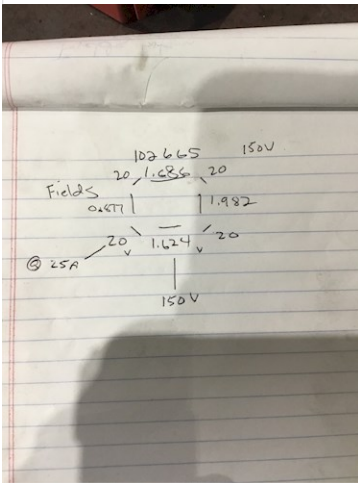 102665 150V
20 1.686 20
Fields
0.877 1.982
20V 1.624 V 20
@ 25A
150V